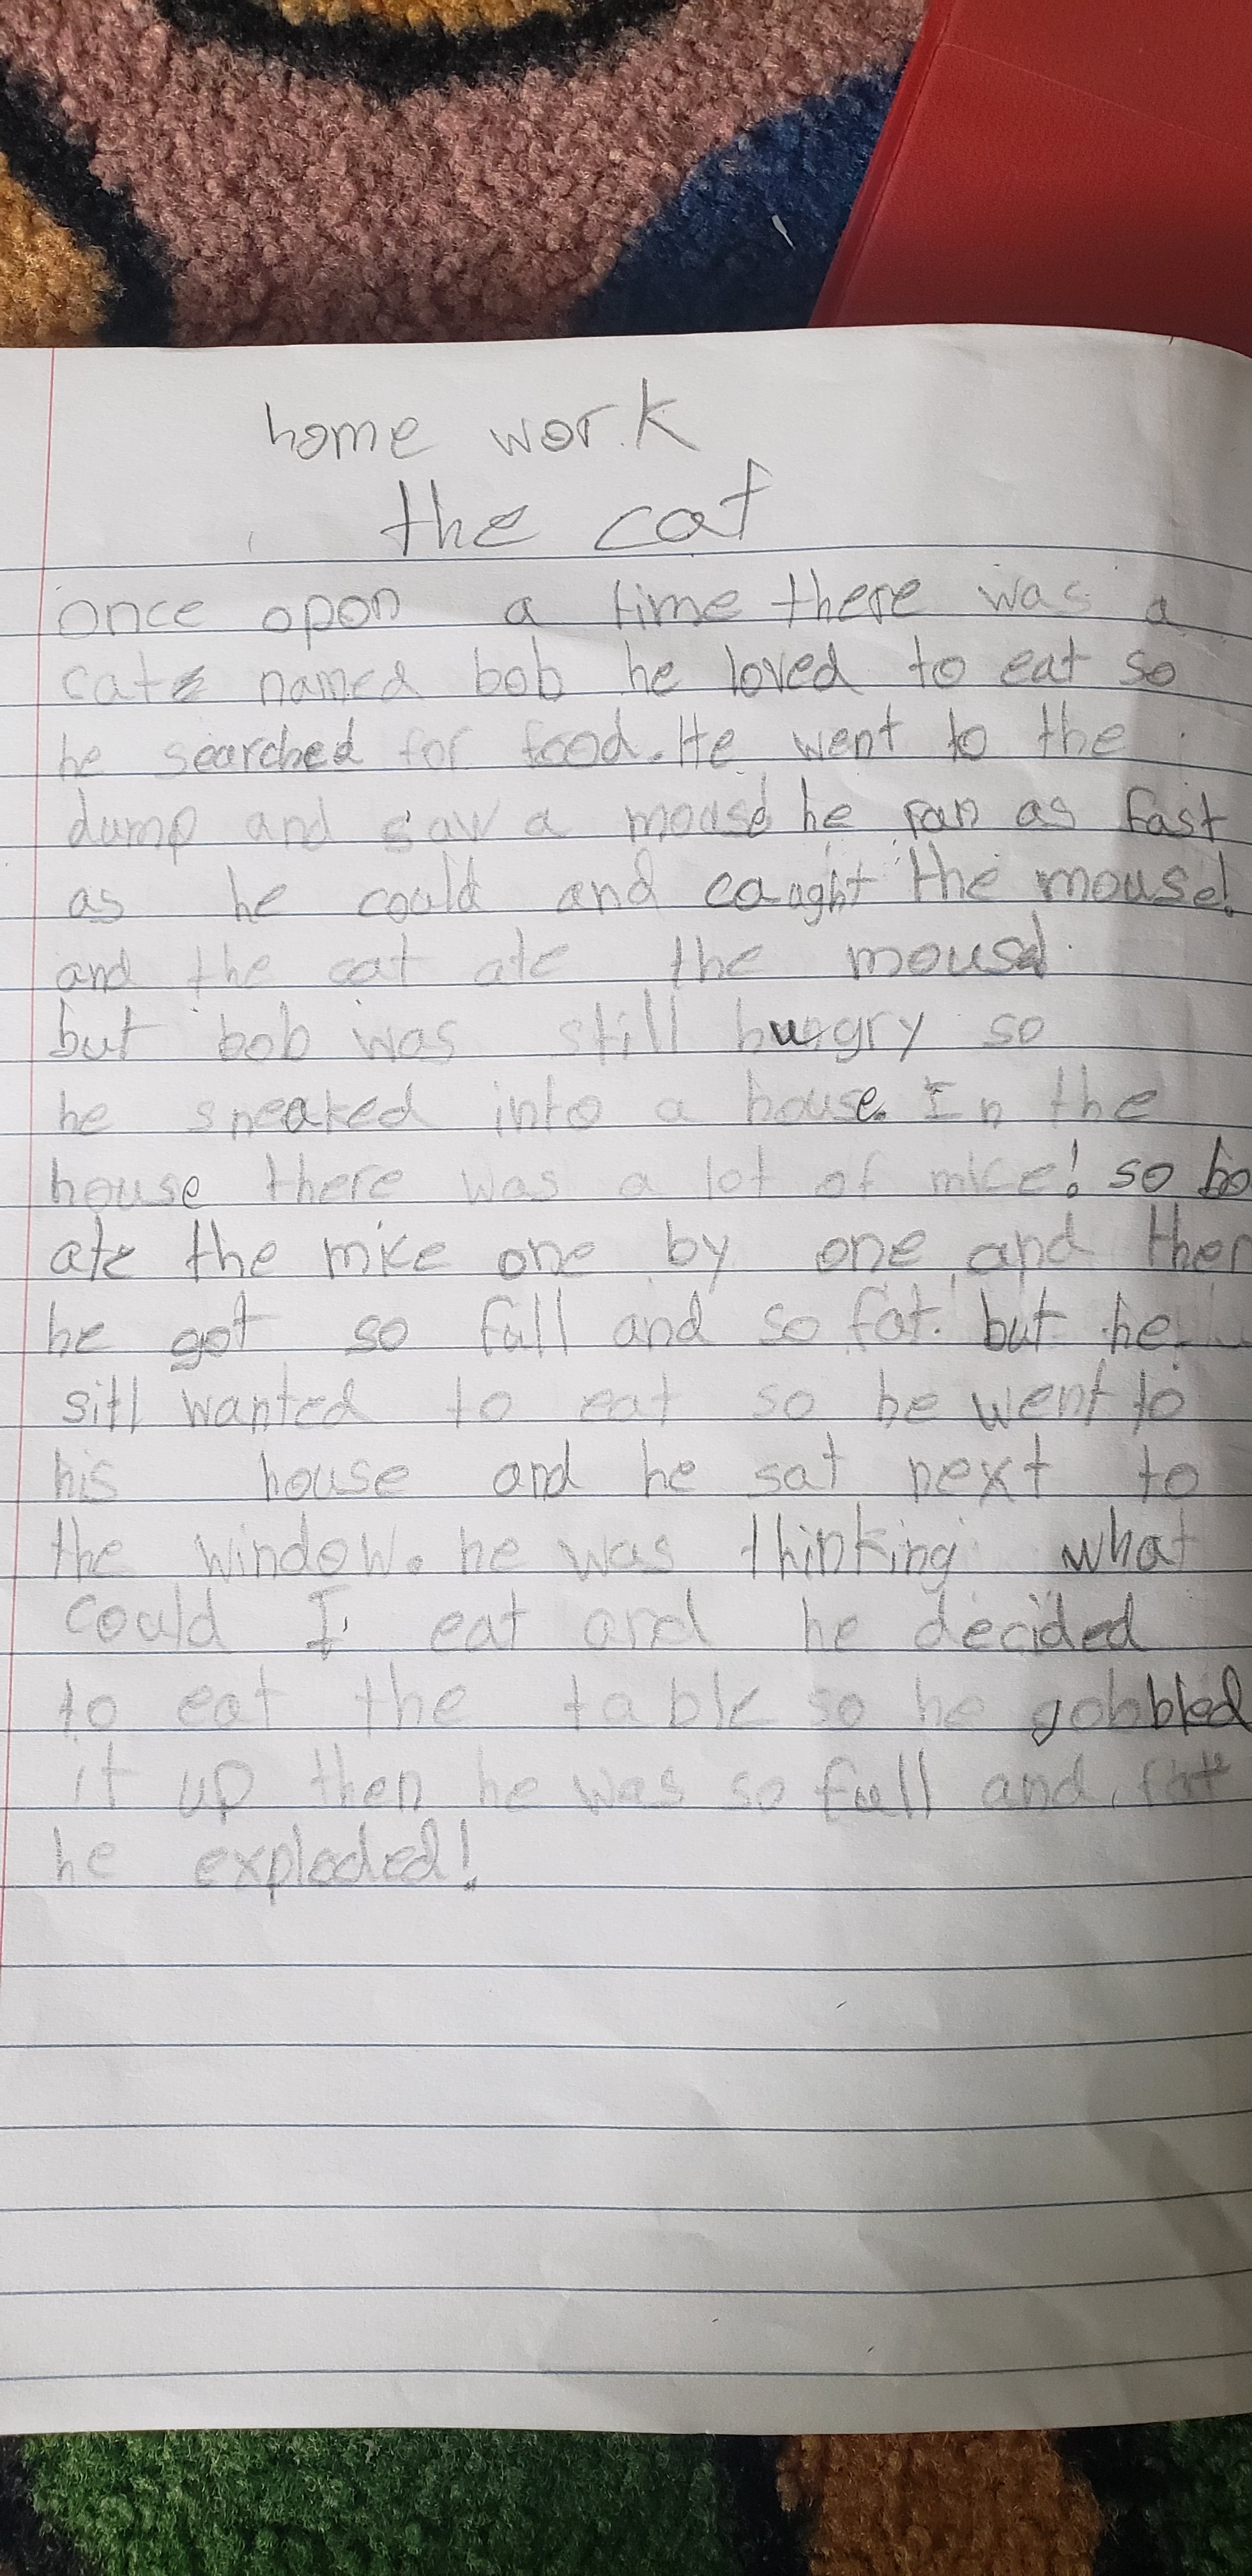 home work
the cat
once opon a time there was a
cat named bob he loved to eat so
he searched for food. He went to the
dump and saw a mouse he ran as fast
as he could and caught the mouse!
and the cat ate the mouse
but bob was still hungry so
he sneaked into a house. In the
house there was a lot of mice! so bo
ate the mice one by one and then
he got so full and so fat. but he
sitl wanted to eat so he went to
his house and he sat next to
the window. he was thinking what
could I eat and he decided
to eat the table so he gobbled
it up then he was so full and fat
he exploded!